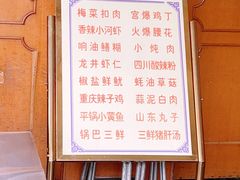 梅菜扣肉 宫爆鸡丁
香辣小河虾 火爆腰花
响油鳝糊 小炖肉
龙井虾仁 四川酸辣粉
椒盐鲜鱿 蚝油草菇
重庆辣子鸡 蒜泥白肉
平锅小黄鱼 山东丸子
锅巴三鲜 三鲜猪肝汤